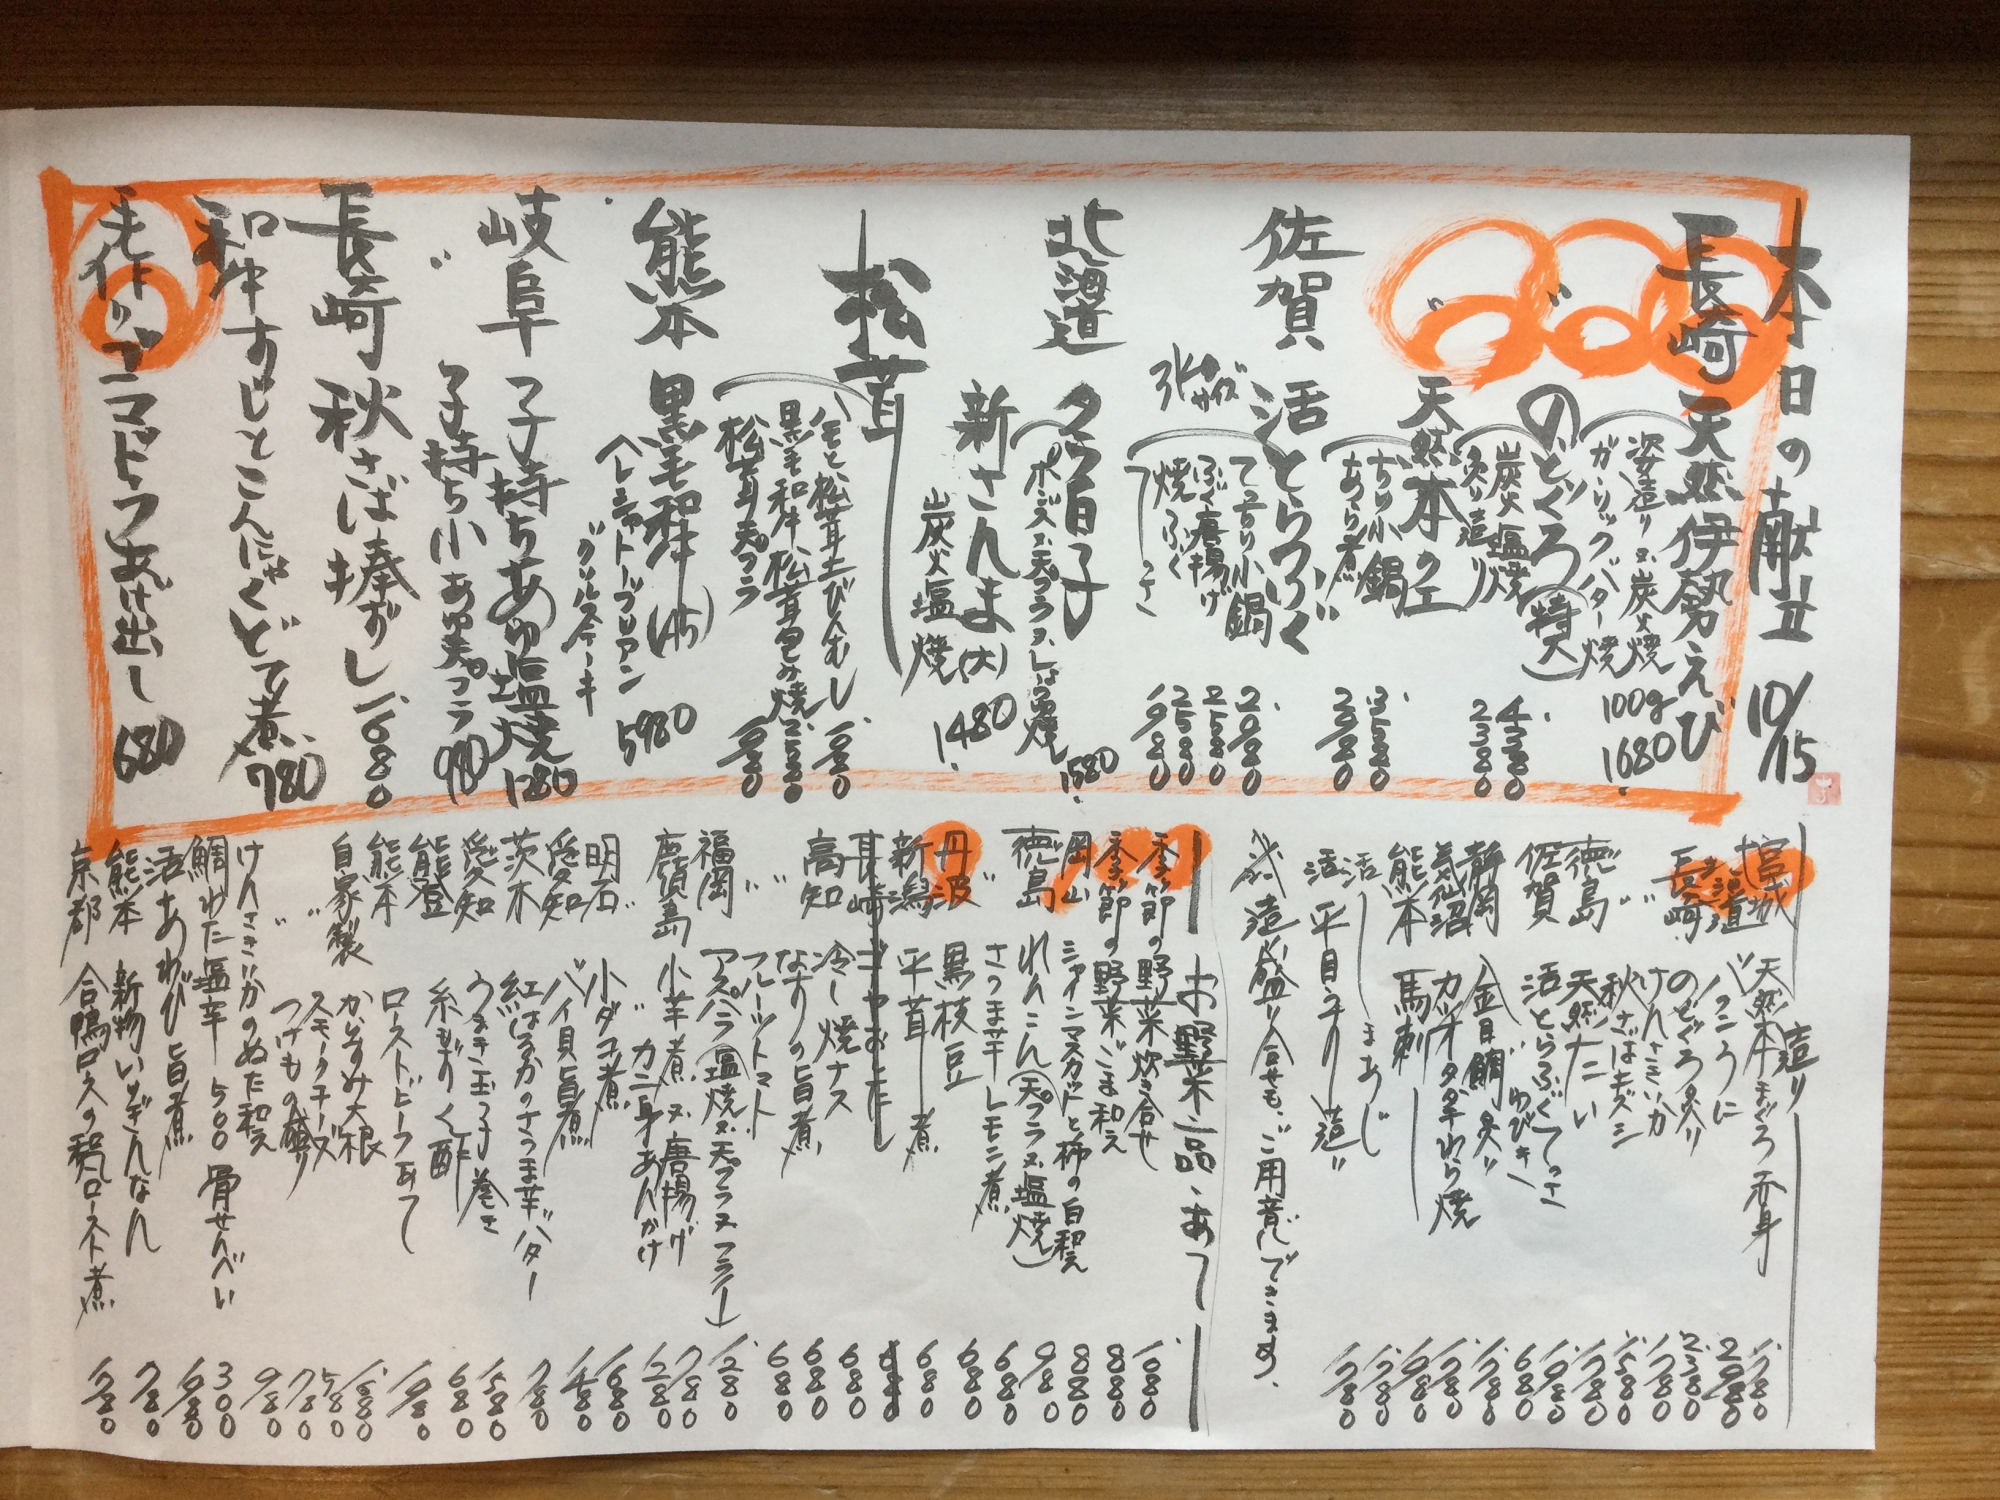 本日の献立 10/15
長崎 天然伊勢えび
姿造り又炭火焼
ガーリックバター焼
100g 1680
〃 のどぐろ(特大)
炭火塩焼 4380
炙り造り 2380
〃 天然本クエ
ちり小鍋 3580
あら煮 2980
佐賀 活とらふぐ
3kgサイズ
てっちり小鍋 2980
ふぐ唐揚げ 2580
焼ふく 2580
てっさ 1980
北海道 真白子
ポン又天プラ又しば焼 1580
新さんま(大)
炭火塩焼 1480
松茸
ハモと松茸土びんむし 1080
黒毛和牛松茸包み焼 2580
松茸天プラ 1980
熊本 黒毛和牛(A5)
ヘレシャトーブリアン
グリルステーキ 5980
岐阜 子持ちあゆ塩焼 1280
〃 子持ち小あゆ天プラ 980
長崎 秋さば棒ずし 1680
和牛すじとこんにゃくどて煮 780
手作りアツアツドーフあげ出し 680
造り
宮城 天然本まぐろ赤身 1780
バフンうに 2980
長崎 のどぐろ炙り 2380
けんさきいか 1780
秋さばきズシ 1580
徳島 天然たい 1780
佐賀 活とらふぐてっさ 1980
〃 ゆびき 680
静岡 金目鯛炙り 1780
気仙沼 カツオタタキわら焼 1780
熊本 馬刺 1980
活 しまあじ 1780
活 平目うすり造り 1780
造り盛り合せも、ご用意できます。
お野菜・一品・あて
季節の野菜炊き合せ 1080
季節の野菜ごま和え 880
岡山 シャインマスカットと柿の白和え 880
徳島 れんこん(天プラ又塩焼) 980
〃 さつま芋レモン煮 680
丹波 黒枝豆 680
新潟 平茸煮 680
長崎 ゴーヤおひたし 680
高知 冷し焼ナス 680
〃 なすの旨煮 680
〃 フルーツトマト 680
福岡 アスパラ(塩焼又天プラ又フライ) 1280
鹿児島 小芋煮又唐揚げ 780
〃 カニ身あんかけ 1280
明石 小ダコ煮 1680
愛知 バイ貝旨煮 1480
茨木 紅はるかのさつま芋バター 780
愛知 うなぎ玉子巻き 1580
能登 糸もずく酢 680
熊本 ローストビーフあて 1980
自家製 からすみ大根 1880
〃 スモークチーズ 580
〃 つけもの盛り 780
けんさきいかのぬた和え 980
鯛わた塩辛 500 骨せんべい 300
活あわび旨煮 1980
熊本 新物いちぎんなん 780
京都 合鴨ロースの和風ロースト煮 1780